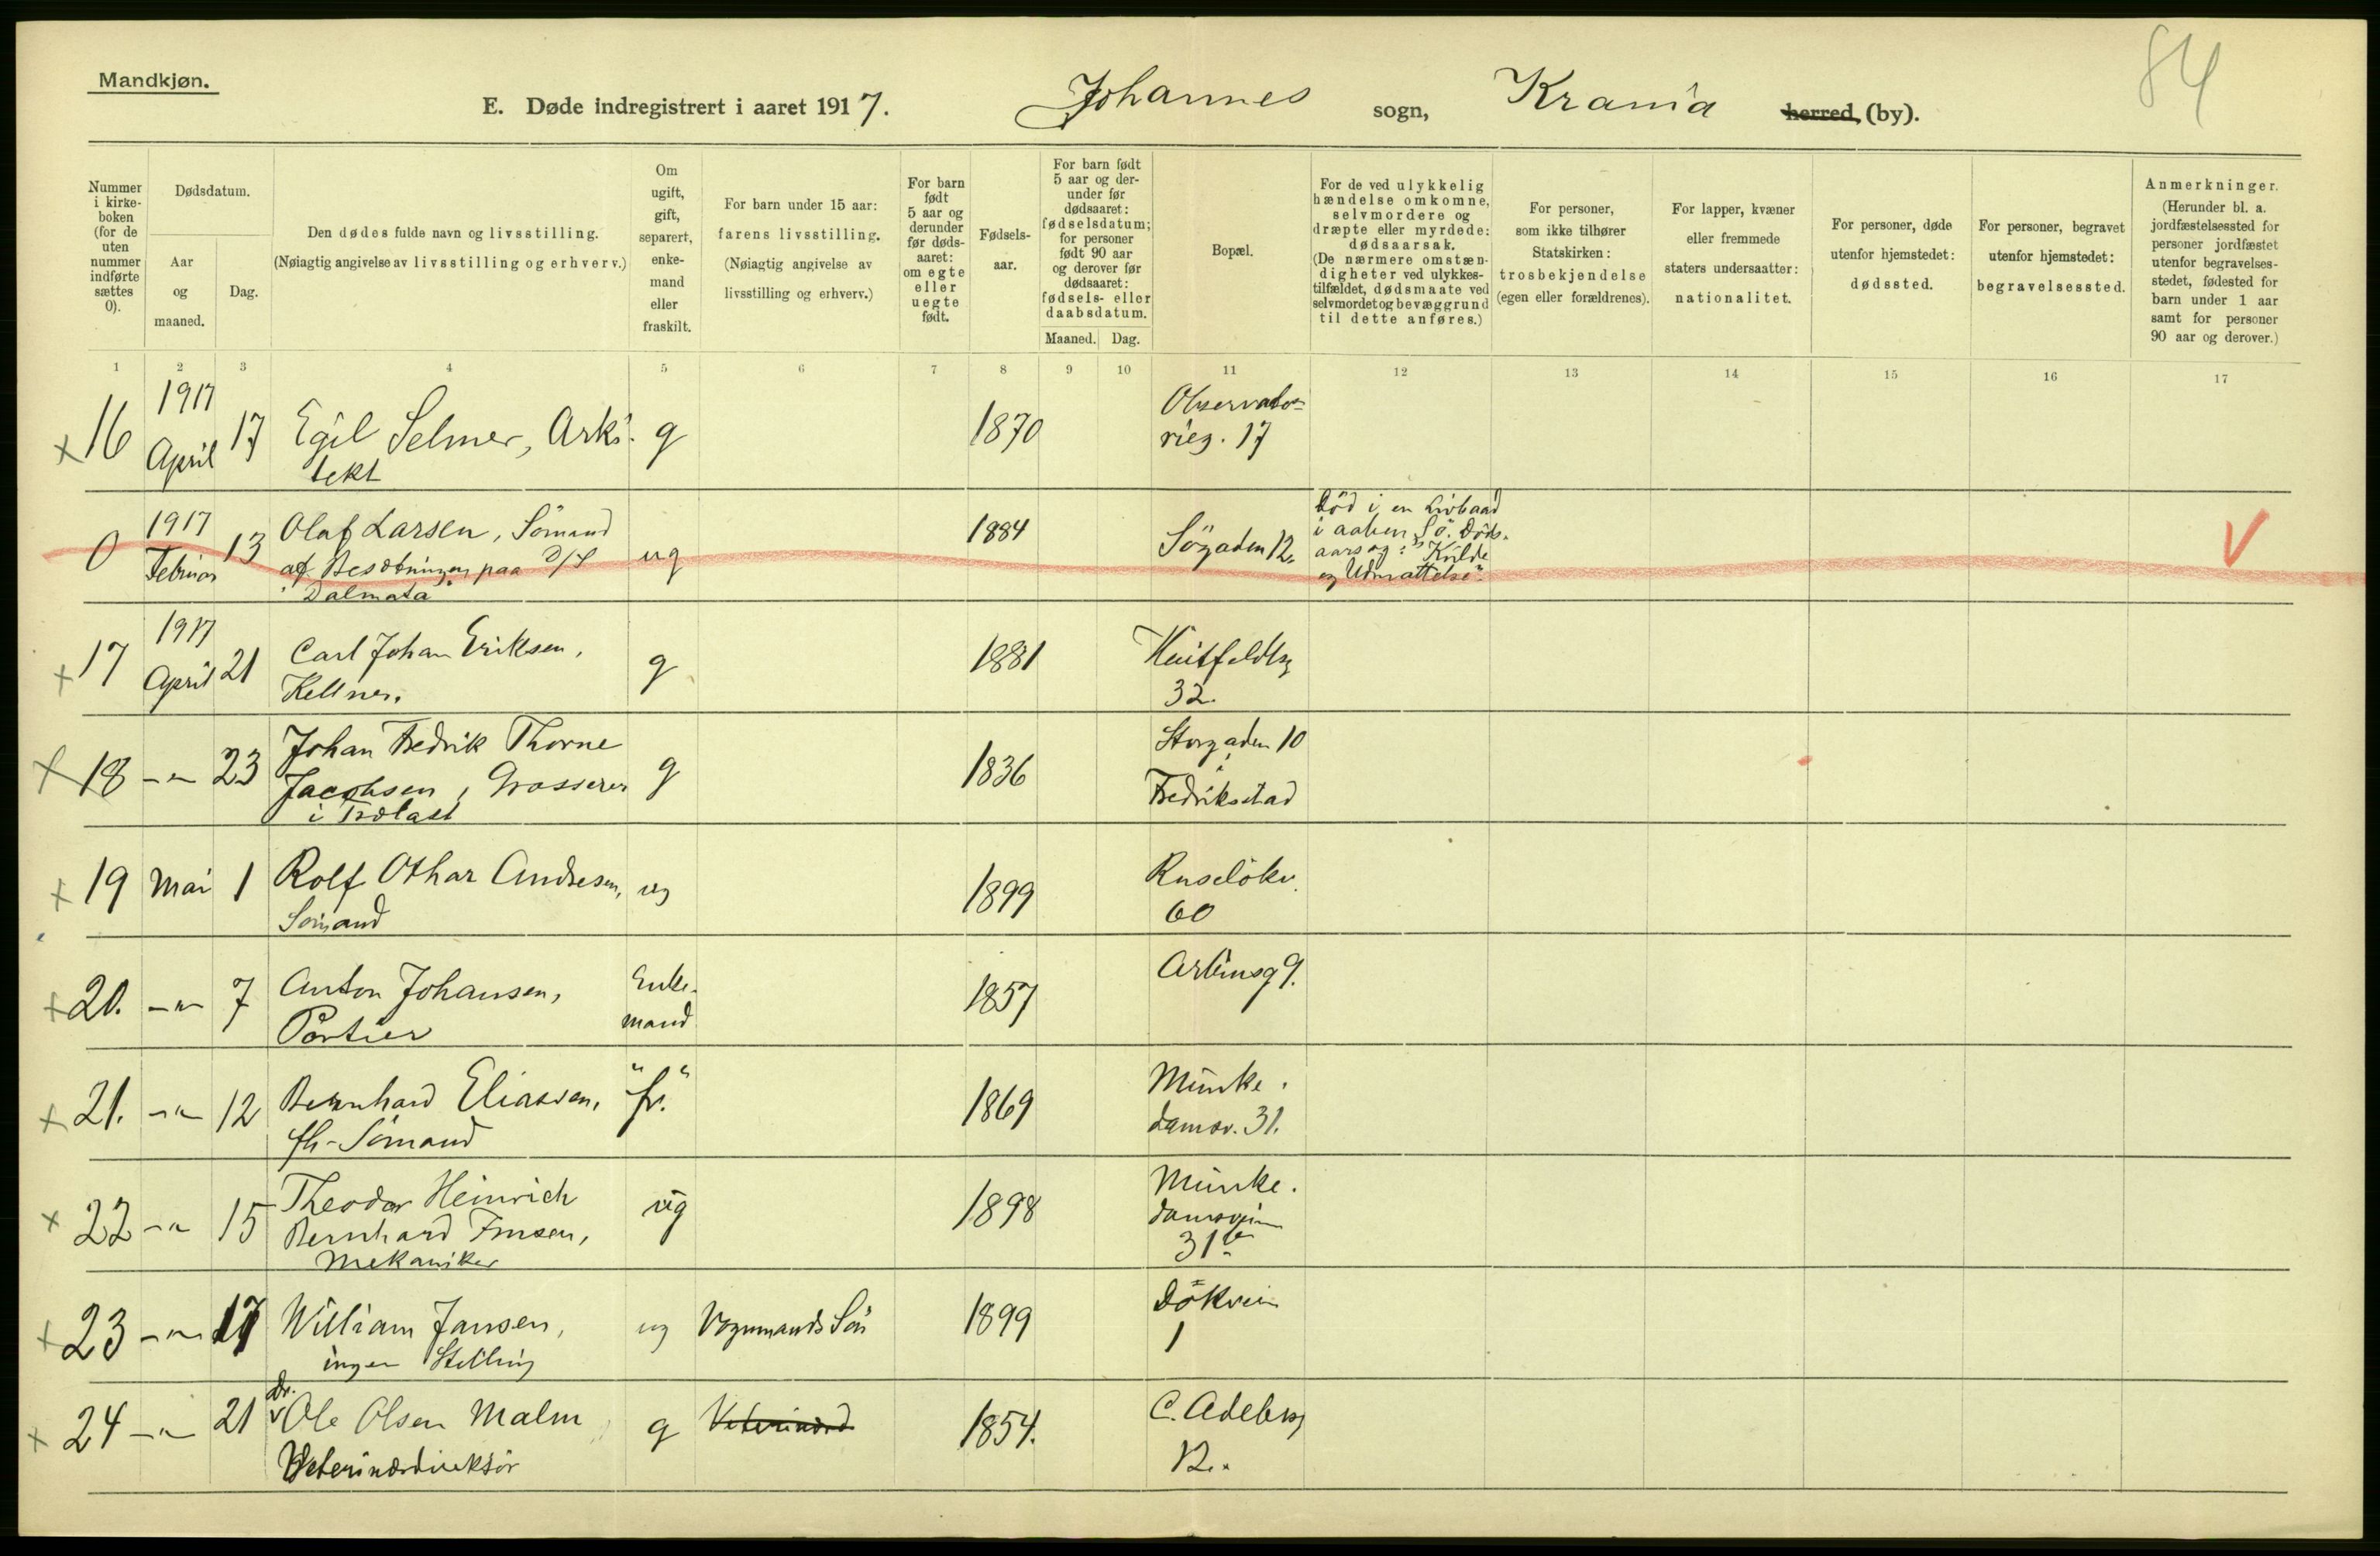 84
Mandkjøn.
E. Døde indregistrert i aaret 1917. Johannes sogn, Krania herred, (by).
Nummer i kirkeboken (for de uten nummer indførte sættes 0).
Dødsdatum.
Aar og maaned.
Dag.
Den dødes fulde navn og livsstilling.
(Nøiagtig angivelse av livsstilling og erhverv.)
Om ugift, gift, separert, enkemand eller fraskilt.
For barn under 15 aar:
farens livsstilling.
(Nøiagtig angivelse av
livsstilling og erhverv.)
For barn født 5 aar og derunder før dødsaaret: om egte eller uegte født.
Fødselsaar.
For barn født 5 aar og derunder før dødsaaret: fødselsdatum; for personer født 90 aar og derover før dødsaaret: fødsels- eller daabsdatum.
Maaned. Dag.
Bopæl.
For de ved ulykkelig hændelse omkomne, selvmordere og dræpte eller myrdede: dødsaarsak. (De nærmere omstændigheter ved ulykkestilfældet, dødsmaate ved selvmordet og bevæggrund til dette anføres.)
For personer, som ikke tilhører Statskirken: trosbekjendelse (egen eller forældrenes).
For lapper, kvæner eller fremmede staters undersaatter: nationalitet.
For personer, døde utenfor hjemstedet: dødssted.
For personer, begravet utenfor hjemstedet: begravelsessted.
Anmerkninger. (Herunder bl. a. jordfæstelsessted for personer jordfæstet utenfor begravelsesstedet, fødested for barn under 1 aar samt for personer 90 aar og derover.)
1 2 3 4 5 6 7 8 9 10 11 12 13 14 15 16 17
x 16 1917 April 17 Egil Selmer, Arkitekt g 1870 Observatorieg. 17
0 1917 Februar 13 Olaf Larsen, Sömand af Besætningen paa D/S "Dalmata" ug 1884 Sögaden 12. Död i en Livbaad i aaben Sö. Dödsaarsag: "Kulde og Udmattelse". V
x 17 1917 April 21 Carl Johan Eriksen, Kellner. g 1881 Huitfeldtsg 32.
x 18 -"- 23 Johan Fredrik Thorne Jacobsen, Grosserer i Trælast g 1836 Storgaden 10 i Fredriksstad
x 19 Mai 1 Rolf Othar Andresen, Sömand ug 1899 Ruselökv. 60
x 20. -"- 7 Anton Johansen, Portier Enkemand 1857 Arbinsg 9.
x 21. -"- 12 Bernhard Eliassen, fh. Sömand "fr." 1869 Munkedamsv. 31.
x 22 -"- 15 Theodor Heinrich Bernhard Mekaniker ug 1898 Munkedamsveien 31 b
x 23 -"- 17 William Jansen, ingen Stilling ug Vognmands Sön 1899 Dokvein 1
x 24 -"- 21 Dr. Ole Olsen Malm Veterinærdirektör g Veterinærd 1854. C. Adelersg 12.